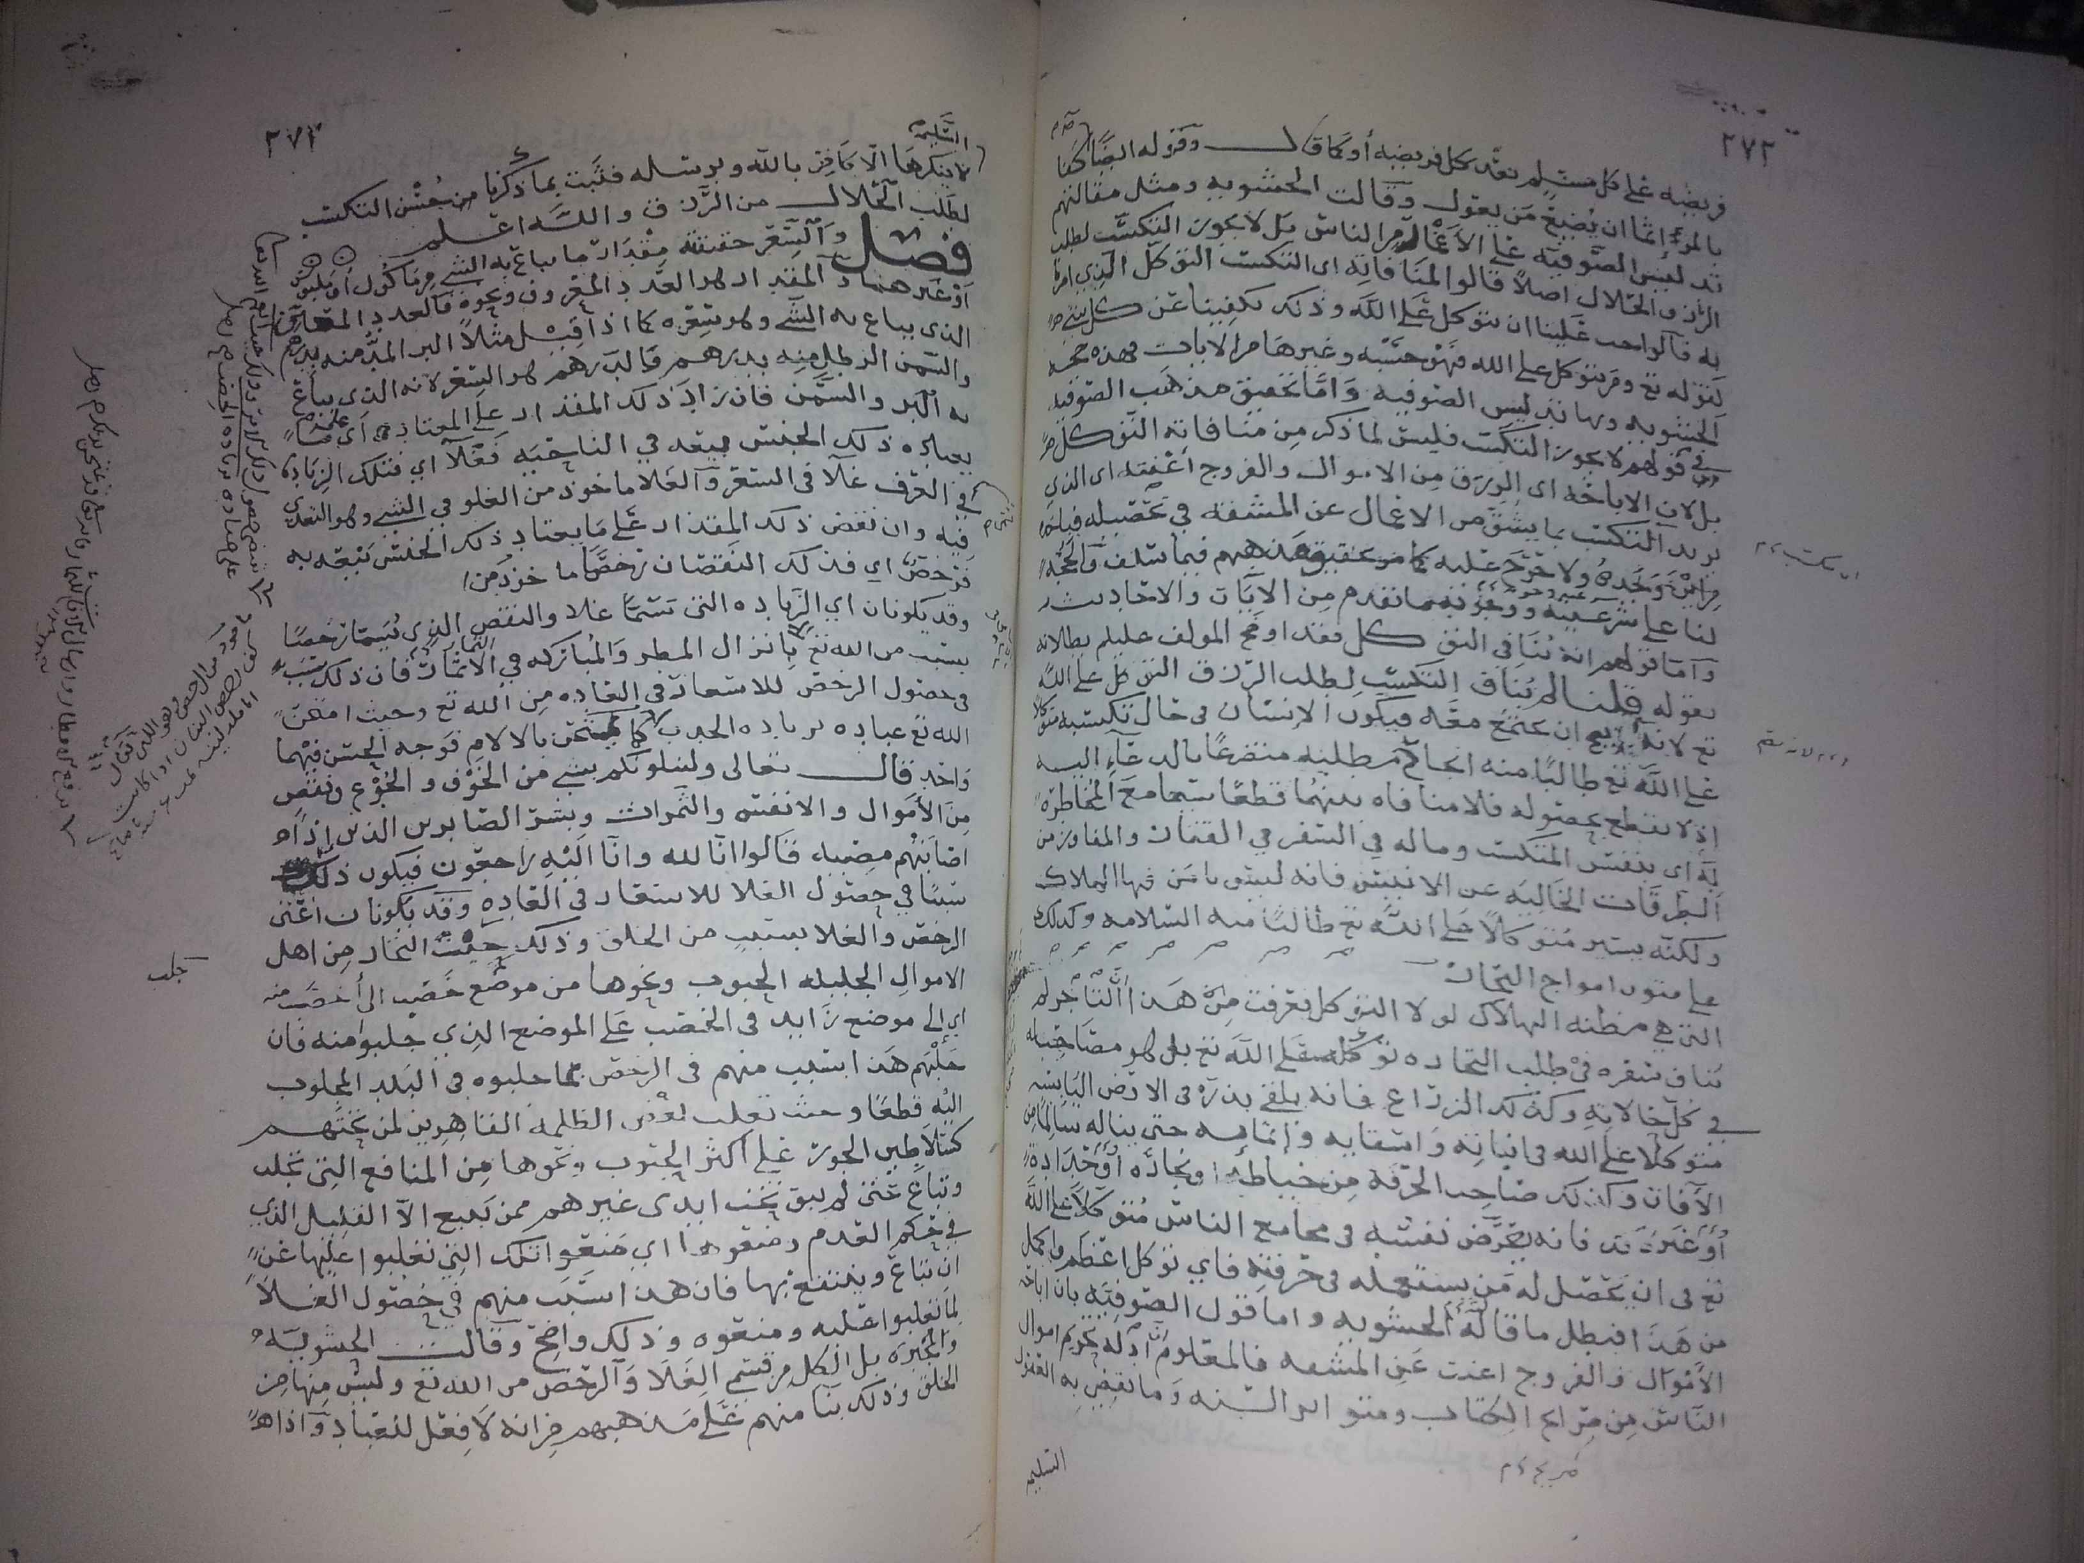 ٢٧٢
فريضه على كل مسلم بعد كل فريضه أو كما قال وقوله ايضًا كفا
بالمرء إثما ان يُضيع من يعول وقالت الحشويه ومثل مقالتهم
لبس الصوفيه على الأغمار من الناس بل لا يجوز التكسب لطلب
الرزق الحلال اصلاً قالوا لمنافاته اى التكسب التوكل الذى امرنا
به قالوا يجب علينا ان نتوكل على الله وذلك يكفينا عن كل شي
لقوله تع ومن يتوكل على الله فهو حسبه وغيرها من الايات فهذه حجه
الحشويه وبها تدليس الصوفيه وامّا تحقيق مذهب الصوفيه
في قولهم لا يجوز التكسب فليس لما ذكر مِن منافاته التوكل
بل لان الاباحه اى للرزق مِن الاموال والفروج أغنته اى الذى
يريد التكسب بما يشق من الاعمال عن المشقه في تحصيله فيلزم
مِن اين وجده ولا حرج عليه كما مر تحقيق مذهبهم فيما سلف والحجه
لنا على شرعيته ووجوبه ما تقدم مِن الآيات والاحاديث
وامّا قولهم انه يُنافى التوكل فقد اوضح المولف عليلم بطلانه
بقوله قلنا لم يُناف التكسب لطلب الرزق التوكل على الله
تع لانه يصح ان يجتمع معه فيكون الإنسان فى حال تكسبه متوكلا
على الله تع طالبًا منه انجاح مطلبه متضرعًا بالدعاء اليه
إذ لا يقطع بحصوله فلا منافاه بينهُما قطعًا سيما مع المخاطره
به أى بنفس المتكسب وماله في السفر في القفار والمفاوز من
الطرقات الخاليه عن الانيس فانه ليس يامن فيها الهلاك
ولكنه يسير مُتوكلاً على الله تع طالبًا منه السلامه وكذلك
على متون امواج البحار
التي هي مظنه الهلاك لولا التوكل فعرفت مِن هذا أنّ التاجر لم
يُناف سفره فى طلب التجاره توكله على الله تع بل هو مصاحب له
في كل حالاته وكذلك الزراع فانه يلقى بذره فى الارض اليابسه
متوكلاً على الله فى انباته واسقايه وإتمامه حتى يناله سالمًا من
الآفات وكذلك صاحب الحرفه مِن خياطه او نجاره أو حداده
أو غير ذلك فانه يعرّض نفسه فى مجامع الناس مُتوكلاً على الله
تع فى ان يحصل له مَن يستعمله فى حرفته فاي توكل اعظم واكمل
من هذا فبطل ما قالته الحشويه واما قول الصوفيه بان اباحه
الأموال والفروج اغنت عن المشقه فالمعلوم أن ادله تحريم اموال
النّاس مِن صرايح الكتاب ومتواتر السنه وما يقضي به العقول
التسليم
٢٧٣
التسليم
لا ينكرها الّا كافر بالله وبرسله فثبت بما ذكرنا من حُسْن التكسب
لطلب الحلال من الرزق والله اعلم
فصل والسِّعر حقيقته مِقدار ما يباع به الشي مِن ماكول أو ملبوس
أوْ غيرهما والمقدار هو العدد المعروف ونحوه فالعدد المتعلق
الذى يباع به الشي وهو سِعره كما اذا قيل مثلاً البر المدّ منه بدرهم
والسمن الرطل مِنه بدرهم فالدرهم هو السِعر لانه الذى يباع
به البر والسَّمن فان زاد ذلك المقدار على المعتاد اى على ما
يعتاده ذلك الجنس بيعه في الناحيه فغلاً اي فتلك الزياده
في العرف غلآ فى السعر والغلا ماخوذ من الغلو فى الشي وهو التعدي
فيه وان نقص ذلك المقدار على ما يعتاد ذلك الجنس بَيعه به
فرخص اي فذلك النقصان رخصًا ماخوذ من
وقد يكونان اي الزياده التى تسمّا غلا والنقص الذى يُسمّا رخصًا
بسبب من الله تع بانزال المطر والمباركه في الاثمار فان ذلك سبب
فى حصول الرخص للاسعار فى العاده مِن الله تع وحيث امتحن
الله تع عباده بزياده الجدب كما يمتحن بالالام فوجه الحسن فيهما
واحد قال تعالى ولنبلونكم بشي من الخوْف والجُوْع ونقص
مِن الأموال والانفس والثمرات وبشر الصابرين الذين إذا
اصابتهم مصيبه قالوا انّا لله وانّا اليْهِ راجعون فيكون ذلك
سببًا في حصول الغلا للاسعار فى العاده وقد يكونان اعنى
الرخص والغلا بسبب من الخلق وذلك حيْث التجار مِن اهل
الاموال الجليله الحبوب ونحوها من موضع خصب الى أخصب منه
اي إلى موضع زايد فى الخصب على الموضع الذي جلبوا منه فان
جلبهم هذا سبب منهم فى الرخص لما جلبوه فى البلد المجلوب
اليْه قطعًا وحيث تغلب بعْض الظلمه القاهرين لمن تحتهم
كسلاطين الجور على أكثر الحبوب ونحوها مِن المنافع التى تجلب
وتباع حتى لم يبق تحت ايدى غيرهم ممن يبيع الآ القليل الذي
في حكم العدم ومنعوها اي مَنعوا تلك التى تغلبوا عليها عن
ان تباع وينتفع بها فان هذا سَبَب منهم في حُصول الغلا
لما تغلبوا عليه ومنعوه وذلك واضح وقالت الحشويّه
والمجبره بل الكل مِن قسمي الغلا والرخص من الله تع وليس مِنها مِن
الخلق وذلك بنا منهم على مذهبهم مِن انه لا فِعل للعباد واذا
جلب